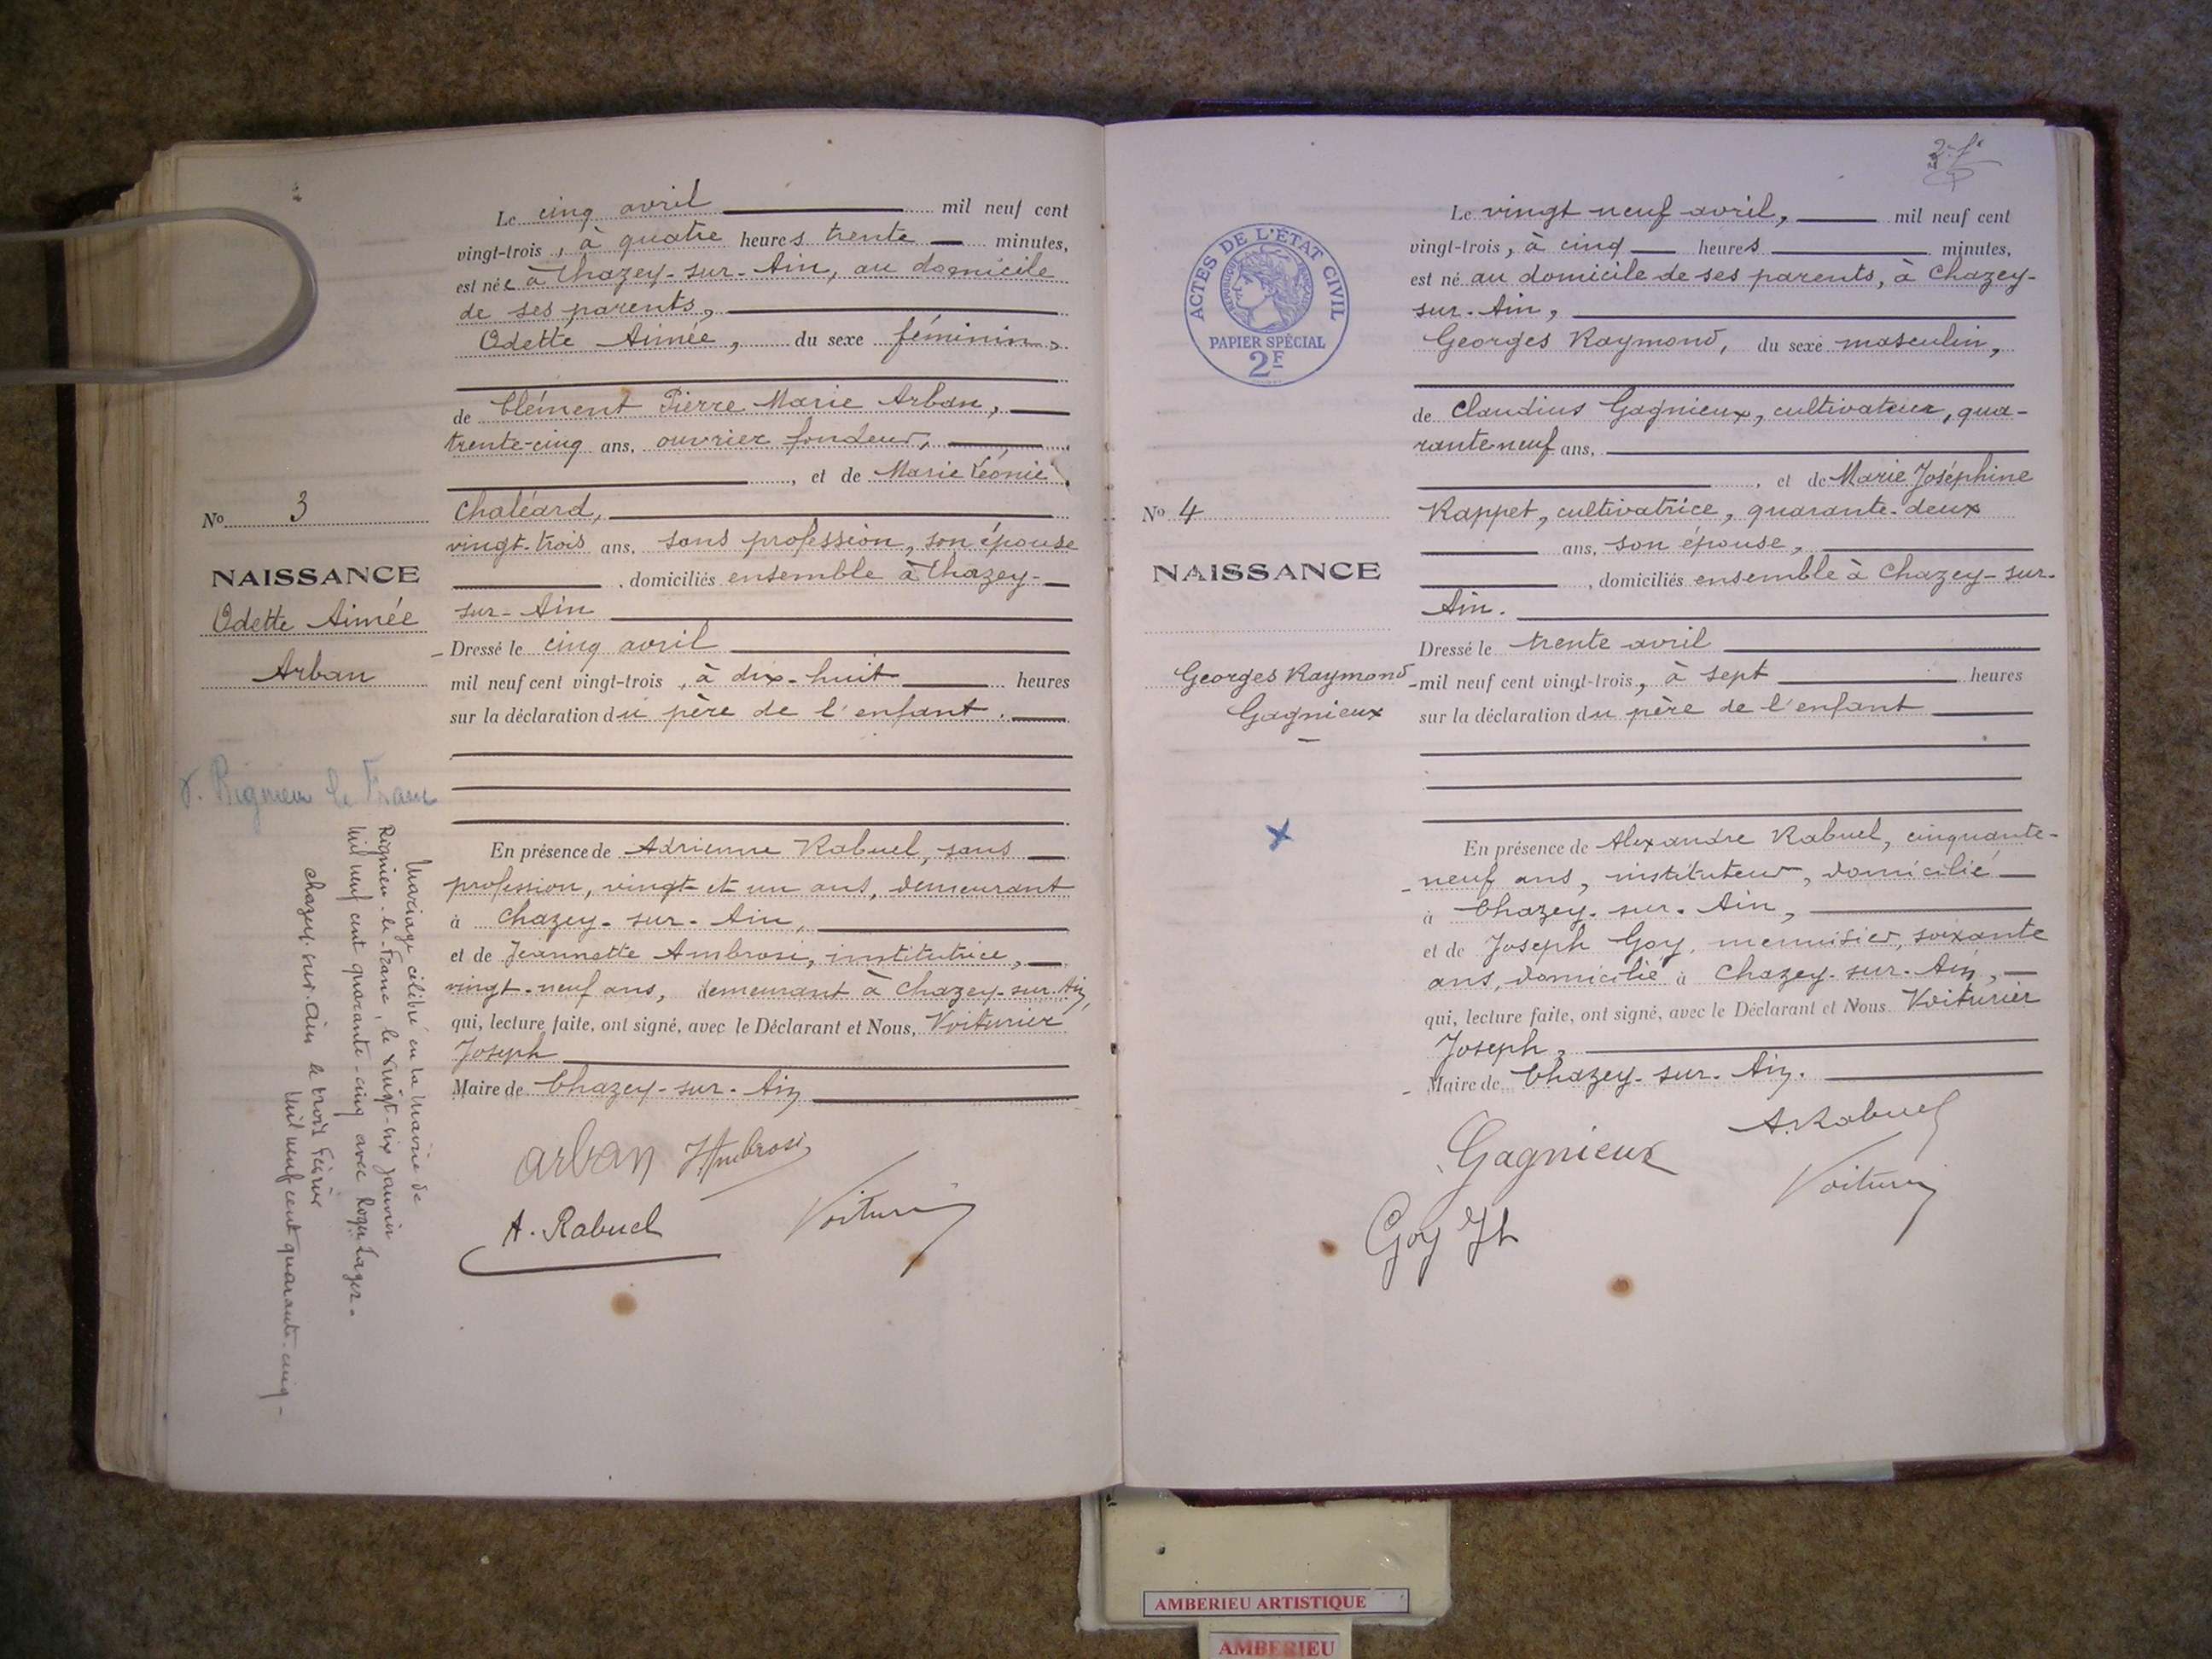 Le cinq avril mil neuf cent
vingt-trois, à quatre heures trente minutes,
est née à Chazey-sur-Ain, au domicile
de ses parents,
Odette Aimée, du sexe féminin,
de Clément Pierre Marie Arban,
trente-cinq ans, ouvrier fondeur,
, et de Marie Léonie
Chaléard,
vingt-trois ans, sans profession, son épouse
, domiciliés ensemble à Chazey-
sur-Ain
Dressé le cinq avril
mil neuf cent vingt-trois, à dix-huit heures
sur la déclaration du père de l'enfant.
En présence de Adrienne Rabuel, sans
profession, vingt et un ans, demeurant
à Chazey-sur-Ain,
et de Jeannette Ambrosi, institutrice,
vingt-neuf ans, demeurant à Chazey-sur-Ain,
qui, lecture faite, ont signé, avec le Déclarant et Nous, Voiturier
Joseph
Maire de Chazey-sur-Ain
arban JAmbrosi
A. Rabuel Voiturier
No 3
NAISSANCE
Odette Aimée
Arban
Rignieu le Franc
Mariage célébré en la Mairie de
Rignieu-le-Franc, le vingt-six janvier
mil neuf cent quarante-cinq avec Roger
Chazey-sur-Ain le trois février
mil neuf cent quarante-cinq-
ACTES DE L'ÉTAT CIVIL
RÉPUBLIQUE FRANÇAISE
PAPIER SPÉCIAL
2F
Le vingt neuf avril, mil neuf cent
vingt-trois, à cinq heures minutes,
est né au domicile de ses parents, à Chazey-
sur-Ain,
Georges Raymond, du sexe masculin,
de Claudius Gagnieux, cultivateur, qua-
rante-neuf ans,
, et de Marie Joséphine
Rappet, cultivatrice, quarante-deux
ans, son épouse,
, domiciliés ensemble à Chazey-sur-
Ain.
Dressé le trente avril
mil neuf cent vingt-trois, à sept heures
sur la déclaration du père de l'enfant
En présence de Alexandre Rabuel, cinquante-
neuf ans, instituteur, domicilié
à Chazey-sur-Ain,
et de Joseph Goy, menuisier, soixante
ans, domicilié à Chazey-sur-Ain,
qui, lecture faite, ont signé, avec le Déclarant et Nous Voiturier
Joseph,
Maire de Chazey-sur-Ain.
Gagnieux A. Rabuel
Goy Jh Voiturier
No 4
NAISSANCE
Georges Raymond
Gagnieux
AMBERIEU ARTISTIQUE
AMBERIEU